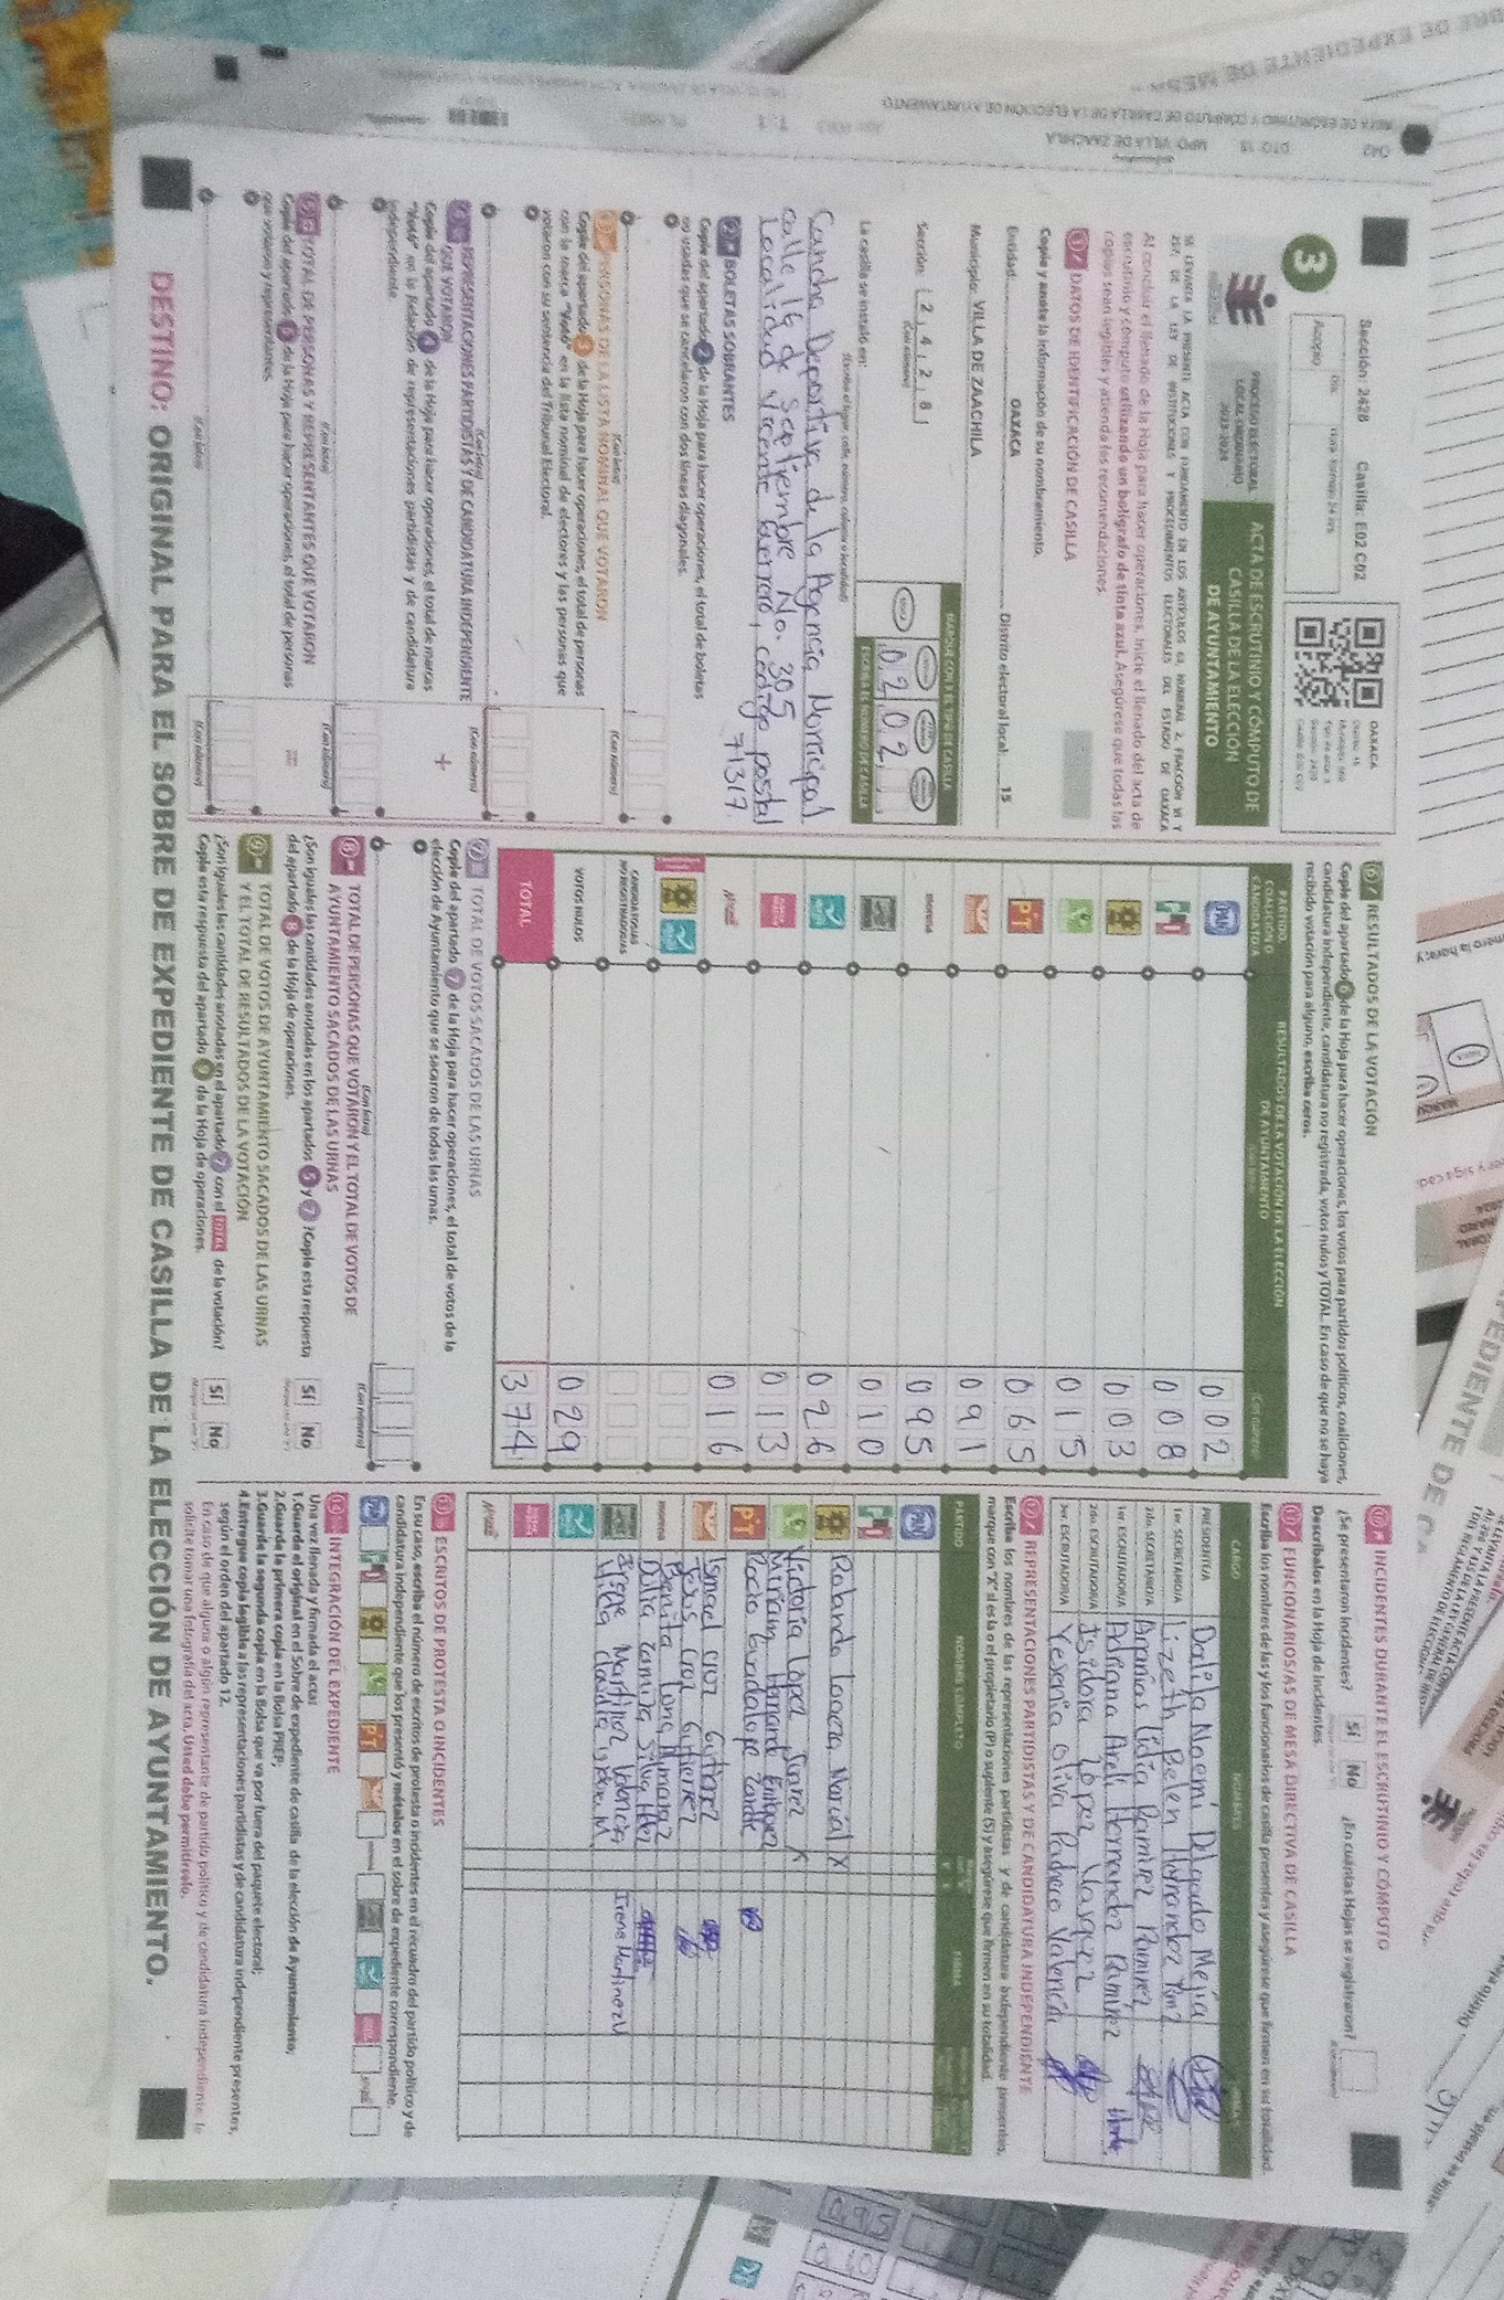 Sección: 2428 Casilla: E02 C02
3
Acopio
OAXACA
PROCESO ELECTORAL
LOCAL ORDINARIO
2023-2024
ACTA DE ESCRUTINIO Y CÓMPUTO DE
CASILLA DE LA ELECCIÓN
DE AYUNTAMIENTO
Al concluir el llenado de la Hoja para hacer operaciones, inicie el llenado del acta de
escrutinio y cómputo utilizando un bolígrafo de tinta azul. Asegúrese que todas las
copias sean legibles y atienda las recomendaciones.
1 DATOS DE IDENTIFICACIÓN DE CASILLA
Copie y anote la información de su nombramiento.
Entidad: OAXACA Distrito electoral local: 15
Municipio: VILLA DE ZAACHILA
Sección: 2 4 2 8
(Con número)
MARQUE CON X EL TIPO DE CASILLA
0 2 0 2
ESCRIBA EL NÚMERO DE CASILLA
La casilla se instaló en:
(Escriba el lugar, calle, número, colonia o localidad)
Cancha Deportiva de la Agencia Municipal
calle 16 de septiembre No. 305
Localidad Vicente Guerrero, codigo postal
71317
2 BOLETAS SOBRANTES
Copie del apartado 2 de la Hoja para hacer operaciones, el total de boletas
no usadas que se cancelaron con dos líneas diagonales.
(Con letra) (Con número)
3 PERSONAS DE LA LISTA NOMINAL QUE VOTARON
Copie del apartado 3 de la Hoja para hacer operaciones, el total de personas
con la marca "Votó" en la lista nominal de electores y las personas que
votaron con su sentencia del Tribunal Electoral.
(Con letra) (Con número)
4 REPRESENTACIONES PARTIDISTAS Y DE CANDIDATURA INDEPENDIENTE
QUE VOTARON
Copie del apartado 4 de la Hoja para hacer operaciones, el total de marcas
"Votó" en la Relación de representaciones partidistas y de candidatura
independiente.
+
(Con letra) (Con número)
5 TOTAL DE PERSONAS Y REPRESENTANTES QUE VOTARON
Copie del apartado 5 de la Hoja para hacer operaciones, el total de personas
que votaron y representantes.
=
(Con letra) (Con número)
6 RESULTADOS DE LA VOTACIÓN
Copie del apartado 6 de la Hoja para hacer operaciones, los votos para partidos políticos, coaliciones,
candidatura independiente, candidatura no registrada, votos nulos y TOTAL. En caso de que no se haya
recibido votación para alguno, escriba ceros.
PARTIDO,
COALICIÓN O
CANDIDATO/A
RESULTADOS DE LA VOTACIÓN DE LA ELECCIÓN
DE AYUNTAMIENTO
(Con número)
PAN 002
PRI 008
003
015
PT 065
091
morena 095
010
026
013
016
CANDIDATOS/AS
NO REGISTRADOS/AS
VOTOS NULOS 029
TOTAL 374
7 TOTAL DE VOTOS SACADOS DE LAS URNAS
Copie del apartado 7 de la Hoja para hacer operaciones, el total de votos de la
elección de Ayuntamiento que se sacaron de todas las urnas.
(Con letra) (Con número)
8 TOTAL DE PERSONAS QUE VOTARON Y EL TOTAL DE VOTOS DE
AYUNTAMIENTO SACADOS DE LAS URNAS
¿Son iguales las cantidades anotadas en los apartados 5 y 7? Copie esta respuesta
del apartado 8 de la Hoja de operaciones.
SÍ No
9 TOTAL DE VOTOS DE AYUNTAMIENTO SACADOS DE LAS URNAS
Y EL TOTAL DE RESULTADOS DE LA VOTACIÓN
¿Son iguales las cantidades anotadas en el apartado 7 con el TOTAL de la votación?
Copie esta respuesta del apartado 9 de la Hoja de operaciones.
SÍ No
10 INCIDENTES DURANTE EL ESCRUTINIO Y CÓMPUTO
¿Se presentaron incidentes? SÍ No ¿En cuántas Hojas se registraron?
Descríbalos en la Hoja de Incidentes.
11 FUNCIONARIOS/AS DE MESA DIRECTIVA DE CASILLA
Escriba los nombres de las y los funcionarios de casilla presentes y asegúrese que firmen en su totalidad.
CARGO NOMBRES
PRESIDENTE/A Dalila Noemi Delgado Mejia
1er. SECRETARIO/A Lizeth Belen Hernandez
2do. SECRETARIO/A Lidia Ramirez Ramirez
1er. ESCRUTADOR/A Adriana Areli Hernandez Ramirez
2do. ESCRUTADOR/A Isidora Lopez Vasquez
3er. ESCRUTADOR/A Yesenia Oliva Pacheco Valencia
12 REPRESENTACIONES PARTIDISTAS Y DE CANDIDATURA INDEPENDIENTE
Escriba los nombres de las representaciones partidistas y de candidatura independiente presentes,
marque con "X" si es la o el propietario (P) o suplente (S) y asegúrese que firmen en su totalidad.
PARTIDO NOMBRE COMPLETO FIRMA
PAN
PRI
Rolando Loaeza Marcial X
Victoria Lopez Juarez X
Miriam
PT Rocio Guadalupe
Ismael Cruz Gutierrez
Jesus Cruz Gutierrez
morena Benita Luna
Dulia Zamira Silva
Irene Martinez Valencia Irene Martinez V
13 ESCRITOS DE PROTESTA O INCIDENTES
En su caso, escriba el número de escritos de protesta o incidentes en el recuadro del partido político y de
candidatura independiente que los presentó y métalos en el sobre de expediente correspondiente.
14 INTEGRACIÓN DEL EXPEDIENTE
Una vez llenada y firmada el acta:
1. Guarde el original en el Sobre de expediente de casilla de la elección de Ayuntamiento;
2. Guarde la primera copia en la Bolsa PREP;
3. Guarde la segunda copia en la Bolsa que va por fuera del paquete electoral;
4. Entregue copia legible a las representaciones partidistas y de candidatura independiente presentes,
según el orden del apartado 12.
En caso de que alguna o algún representante de partido político y de candidatura independiente le
solicite tomar una fotografía del acta, Usted debe permitírselo.
DESTINO: ORIGINAL PARA EL SOBRE DE EXPEDIENTE DE CASILLA DE LA ELECCIÓN DE AYUNTAMIENTO.